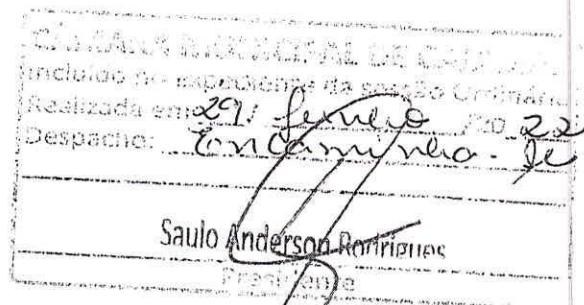 CÂMARA MUNICIPAL DE
Incluído no expediente da sessão Ordinária
Realizada em 29/ /20 22
Despacho: Encaminha-se
Saulo Anderson Rodrigues
Presidente